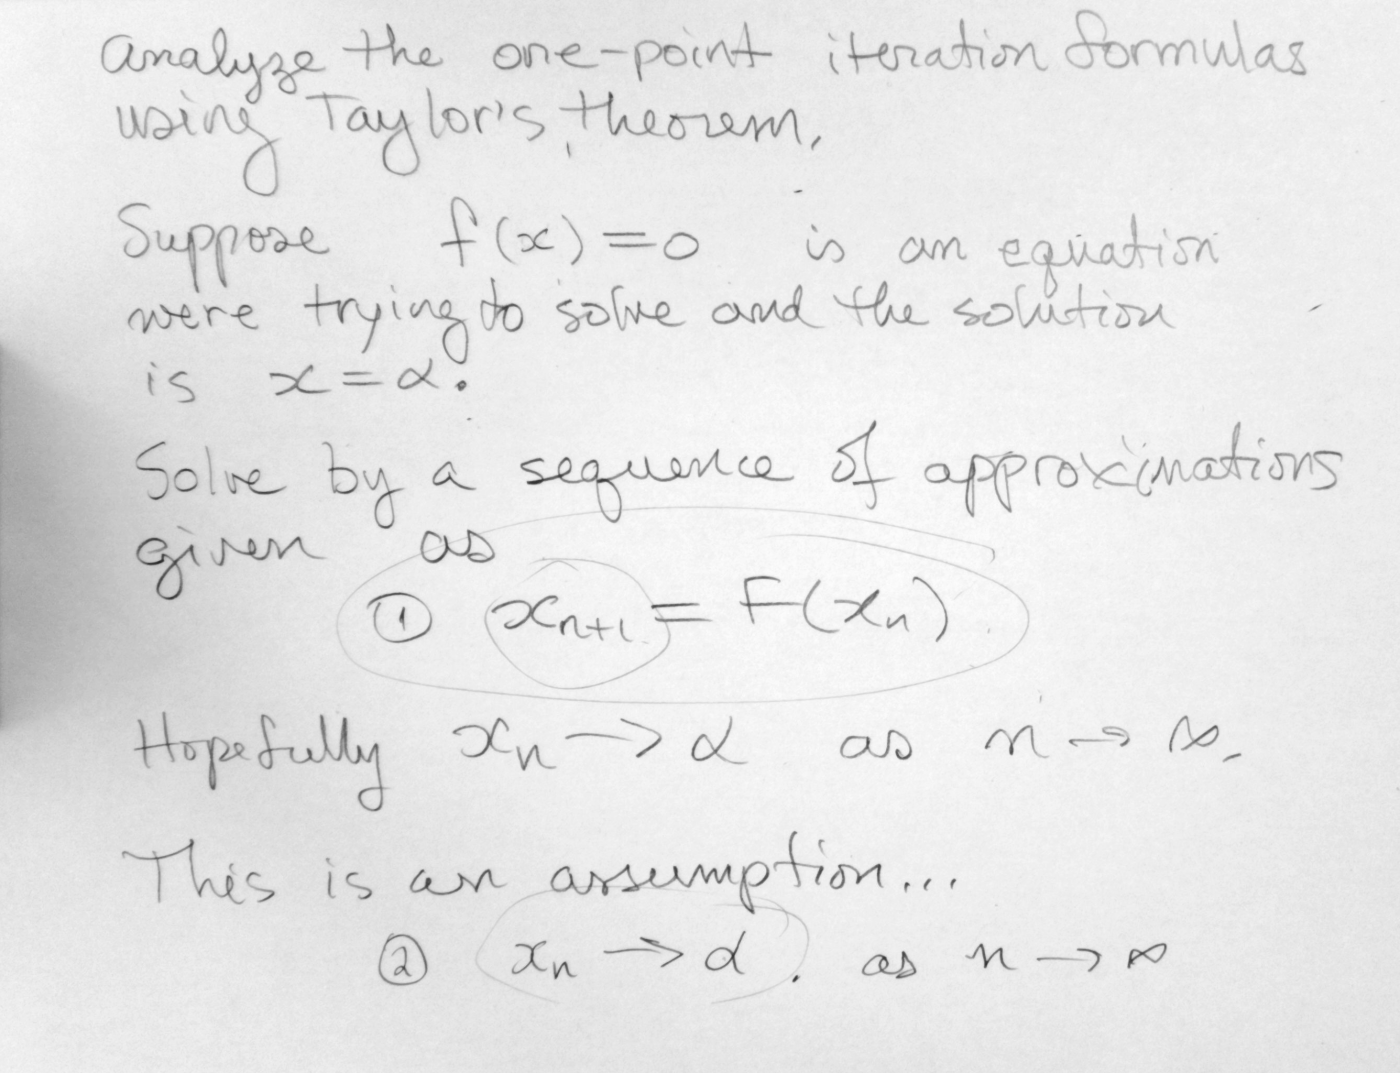 analyze the one-point iteration formulas
using Taylor's theorem.
Suppose f(x)=0 is an equation
were trying to solve and the solution
is x=α.
Solve by a sequence of approximations
given as
① xₙ₊₁ = F(xₙ)
Hopefully xₙ → α as n → ∞.
This is an assumption...
② xₙ → α. as n → ∞